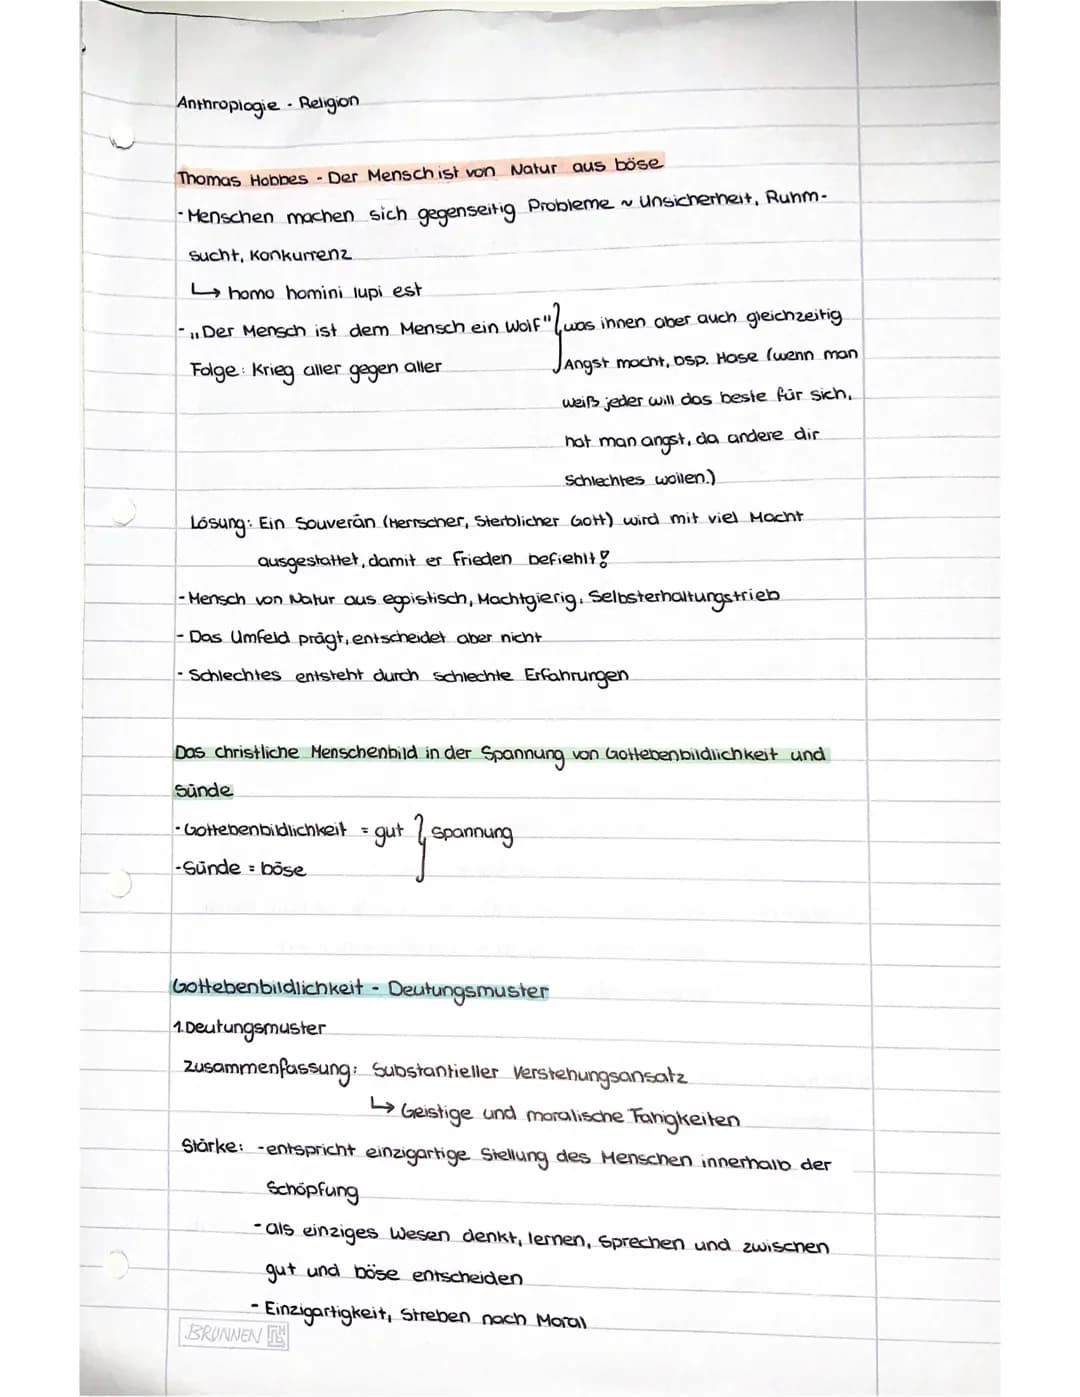 Anthroplogie - Religion
Thomas Hobbes - Der Mensch ist von Natur aus böse
- Menschen machen sich gegenseitig Probleme ~ Unsicherheit, Ruhm-
sucht, Konkurrenz
↳ homo homini lupi est
- „Der Mensch ist dem Mensch ein Wolf" } was ihnen aber auch gleichzeitig
Folge: Krieg aller gegen aller
Angst macht, bsp. Hase (wenn man
weiß jeder will das beste für sich,
hat man angst, da andere dir
Schlechtes wollen.)
Lösung: Ein Souverän (Herrscher, Sterblicher Gott) wird mit viel Macht
ausgestattet, damit er Frieden befiehlt!
- Mensch von Natur aus egoistisch, Machtgierig, Selbsterhaltungstrieb
- Das Umfeld prägt, entscheidet aber nicht
- Schlechtes entsteht durch schlechte Erfahrungen
Das christliche Menschenbild in der Spannung von Gottebenbildlichkeit und
Sünde
- Gottebenbildlichkeit = gut } Spannung
- Sünde = böse
Gottebenbildlichkeit - Deutungsmuster
1. Deutungsmuster
Zusammenfassung: Substantieller Verstehungsansatz
↳ Geistige und moralische Fähigkeiten
Stärke: - entspricht einzigartige Stellung des Menschen innerhalb der
Schöpfung
- als einziges Wesen denkt, lernen, Sprechen und zwischen
gut und böse entscheiden
- Einzigartigkeit, Streben nach Moral
BRUNNEN